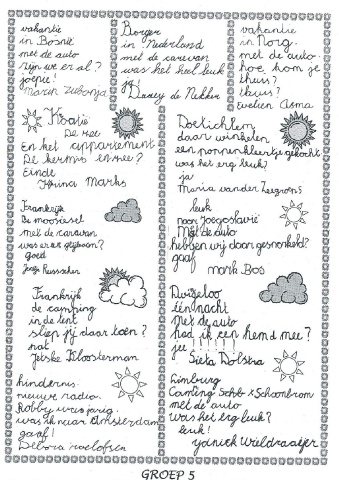 vakantie
in Bosnië
met de auto.
zijn we er al?
joepie!
Borger
in Nederland
met de caravan
was het heel leuk
ja!
Daisey de Nekker
vakantie
in Norg.
met de auto.
hoe kom je
thuis?
thuis?
Evelien
Kroatië
De zee
En het appartement
De kermis en zee?
Einde
Marks
Frankrijk
De moezel
met de caravan
was er ok glijbaan?
goed
Frankrijk
de camping
in de tent
sliep jij daar toen?
nat
Jetske Kloosterman
hindernis.
nieuwe radio.
Robby was jarig.
was ik naar Amsterdam
gaaf!
Debora roelofsen
Doetichem
daar winkelen
een poppenkleertje gekocht
was het erg leuk?
ja
Maria van der
leuk
naar Joegoslavië
Met de auto
hebben wij daar gesnorkeld?
gaaf
mark Bos
één nacht
Met de auto
had ik een hemd mee?
Sieta Dolstra
Limburg
Camping
met de auto
Was het erg leuk?
leuk!
Yanick Wieldraaijer
GROEP 5